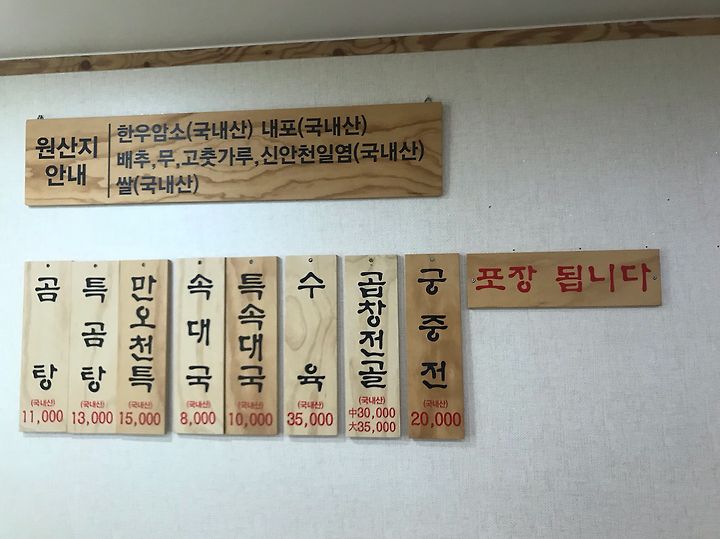 원산지
안내
한우암소(국내산) 내포(국내산)
배추,무,고춧가루,신안천일염(국내산)
쌀(국내산)
곰탕
(국내산)
11,000
특곰탕
(국내산)
13,000
만오천특
(국내산)
15,000
속대국
(국내산)
8,000
특속대국
(국내산)
10,000
수육
(국내산)
35,000
곱창전골
(국내산)
中30,000
大35,000
궁중전
(국내산)
20,000
포장 됩니다